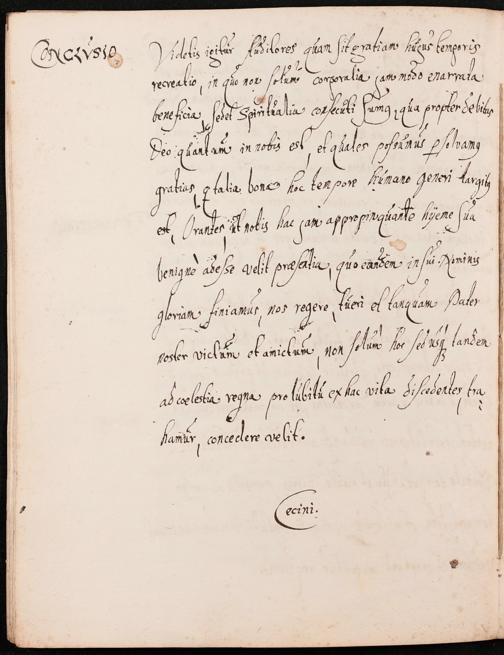 CONCLVSIO
Videtis igitur Auditores quam sit gratiam huius temporis
recreatio, in quo non solum corporalia jam modo enarrata
beneficia, sed et Spiritualia consecuti sumus, qua propter debitas
Deo quantum in nobis est, et quales possumus persolvamus
gratias, q talia bona hoc tempore humano generi largitus
est, Orantes, ut nobis hac jam appropinquante hyeme sua
benignè adesse velit præsentia, quo eandem in sui Nominis
gloriam finiamus, nos regere, tueri et tanquam Pater
noster victum et amictum, non solum hoc sed usq tandem
ad cœlestia regna pro lubitu ex hac vita discedentes, tra
hamur, concedere velit.
Cecini.